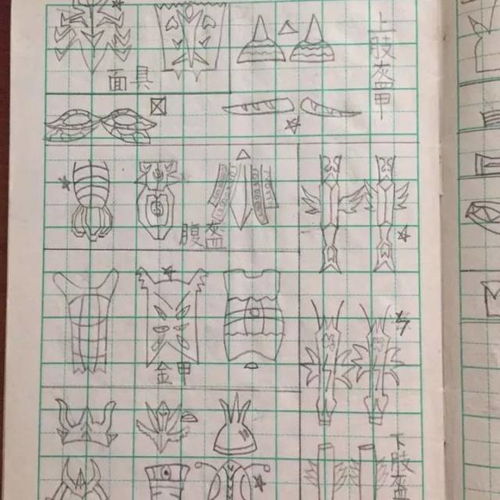 面具
上肢盔甲
腹盔
金甲
下肢盔